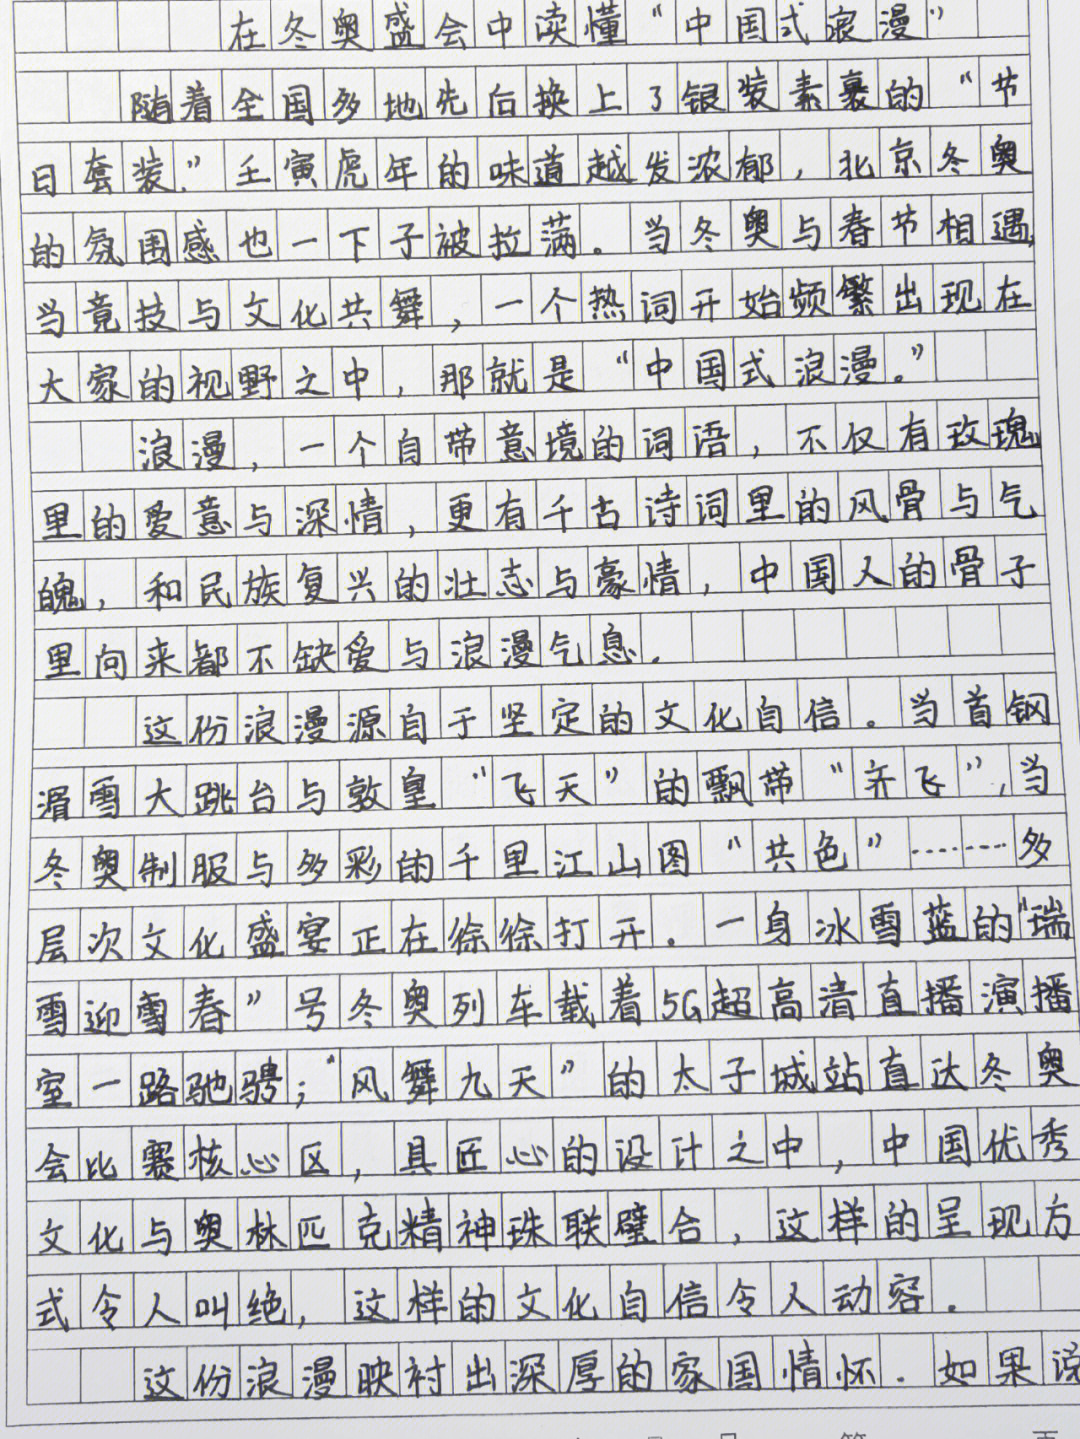 在冬奥盛会中读懂“中国式浪漫”
随着全国多地先后换上了银装素裹的“节
日套装”。壬寅虎年的味道越发浓郁，北京冬奥
的氛围感也一下子被拉满。当冬奥与春节相遇，
当竞技与文化共舞，一个热词开始频繁出现在
大家的视野之中，那就是“中国式浪漫。”
浪漫，一个自带意境的词语，不仅有玫瑰
里的爱意与深情，更有千古诗词里的风骨与气
魄，和民族复兴的壮志与豪情，中国人的骨子
里向来都不缺爱与浪漫气息。
这份浪漫源自于坚定的文化自信。当首钢
滑雪大跳台与敦皇“飞天”的飘带“齐飞”，当
冬奥制服与多彩的千里江山图“共色”………多
层次文化盛宴正在徐徐打开。一身冰雪蓝的“瑞
雪迎雪春”号冬奥列车载着5G超高清直播演播
室一路驰骋；“风舞九天”的太子城站直达冬奥
会比赛核心区，具匠心的设计之中，中国优秀
文化与奥林匹克精神珠联璧合，这样的呈现方
式令人叫绝，这样的文化自信令人动容。
这份浪漫映衬出深厚的家国情怀。如果说